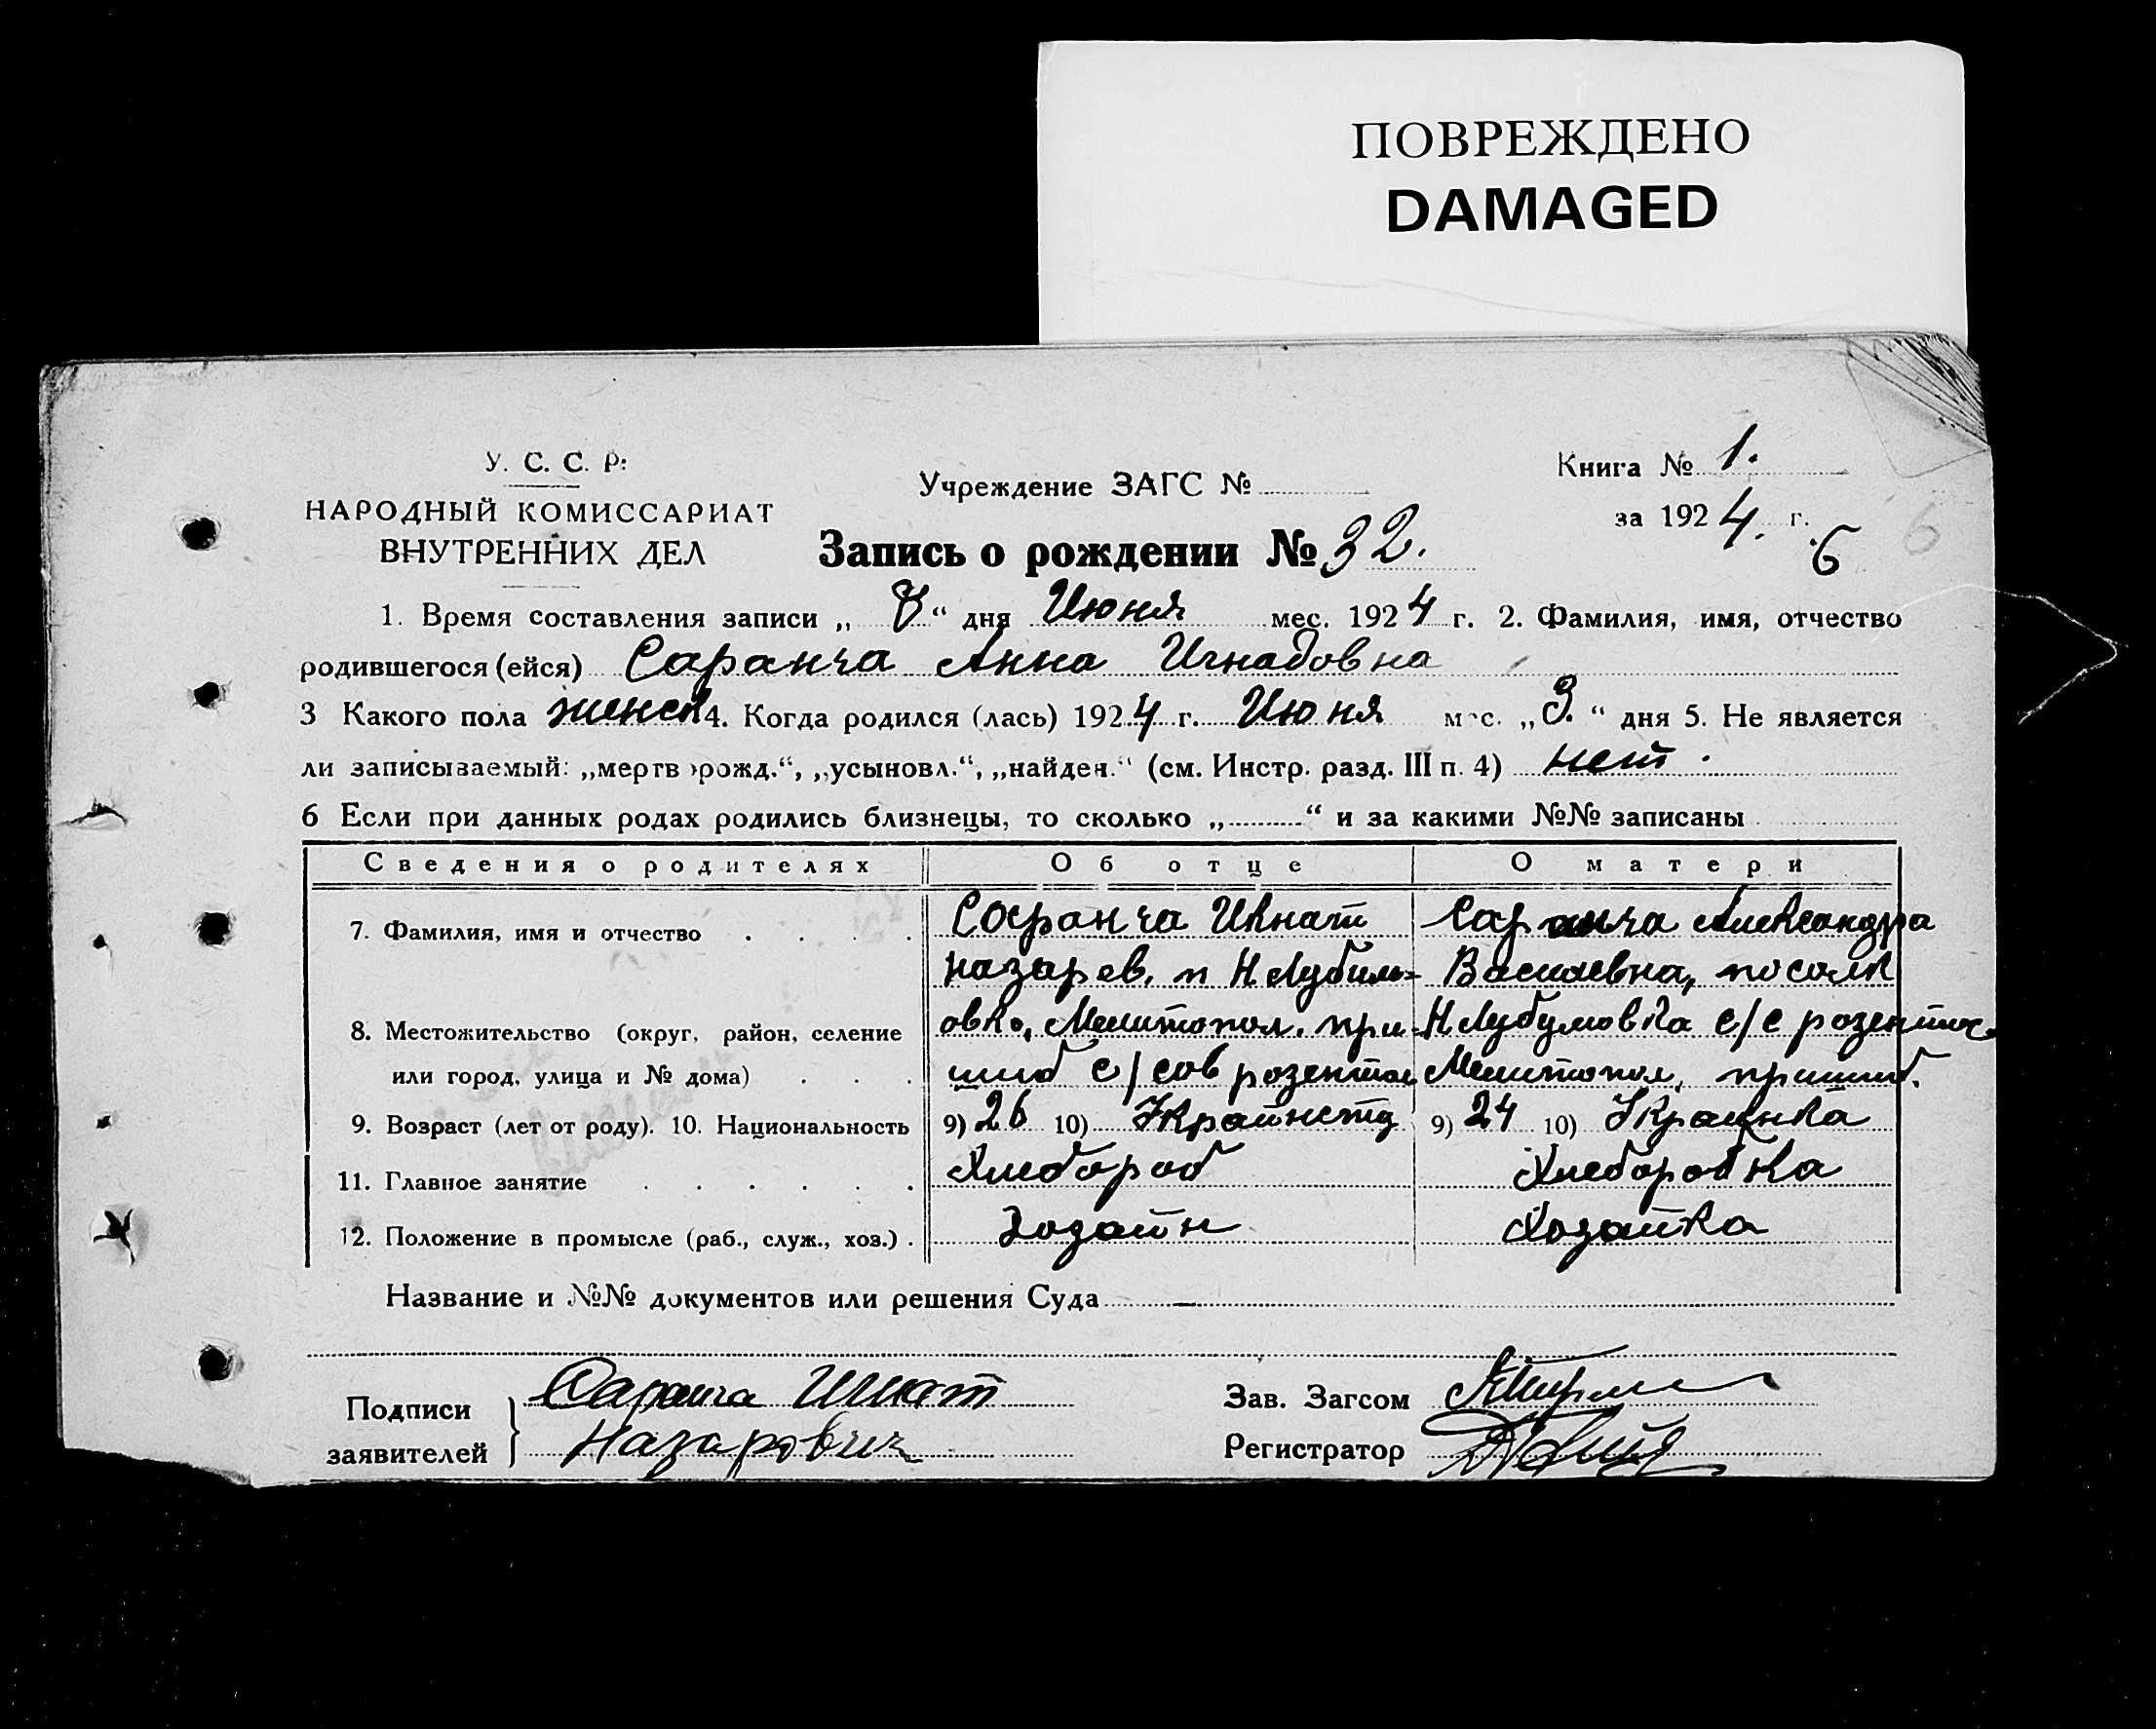 ПОВРЕЖДЕНО
DAMAGED
У. С. С. Р.
НАРОДНЫЙ КОМИССАРИАТ
ВНУТРЕННИХ ДЕЛ
Учреждение ЗАГС №
Книга № 1.
за 1924. г.
6
6
Запись о рождении № 32.
1. Время составления записи „ 8 “ дня Июня мес. 1924 г. 2. Фамилия, имя, отчество
родившегося (ейся) Саранча Анна Игнадовна
3 Какого пола женск 4. Когда родился (лась) 1924 г. Июня мес. „ 3. “ дня 5. Не является
ли записываемый: „мертворожд.“, „усыновл.“, „найден.“ (см. Инстр. разд. III п. 4) нет.
6 Если при данных родах родились близнецы, то сколько „ “ и за какими №№ записаны
Сведения о родителях Об отце О матери
7. Фамилия, имя и отчество Саранча Игнат Саранча Александра
назарев. п Н Любимовка Василевна, посолк
8. Местожительство (округ, район, селение овка, Мелитопол. при- Н Любумовка с/с
или город, улица и № дома) шиб с/сов Мелитопол, пришиб.
9. Возраст (лет от роду). 10. Национальность 9) 26 10) 9) 24 10) Украинка
11. Главное занятие Хлебороб Хлеборобка
12. Положение в промысле (раб., служ., хоз.) Хозаин Хозайка
Название и №№ документов или решения Суда —
Подписи заявителей Саранча Игнат
Назарович
Зав. Загсом
Регистратор